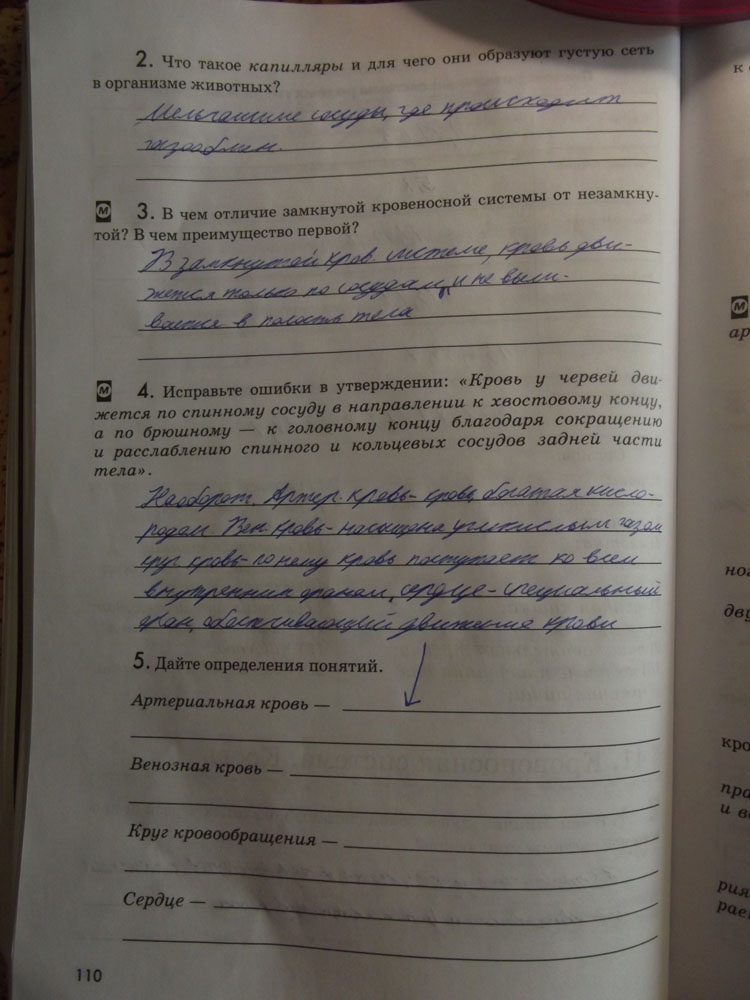 2. Что такое капилляры и для чего они образуют густую сеть
в организме животных?
Мельчайшие сосуды, где происходит
газообмен.
М 3. В чем отличие замкнутой кровеносной системы от незамкну-
той? В чем преимущество первой?
В замкнутой кров. системе, кровь дви-
жется только по сосудам, и не выли-
вается в полость тела
М 4. Исправьте ошибки в утверждении: «Кровь у червей дви-
жется по спинному сосуду в направлении к хвостовому концу,
а по брюшному — к головному концу благодаря сокращению
и расслаблению спинного и кольцевых сосудов задней части
тела».
Наоборот. Артер. кровь - кровь, богатая кисло-
родом. Вен. кровь - насыщена углекислым газом
круг кровь- по нему кровь поступает ко всем
внутренним органам, сердце - специальный
орган, обеспечивающий движение крови
5. Дайте определения понятий.
Артериальная кровь —
Венозная кровь —
Круг кровообращения —
Сердце —
110
к
М
ар
ног
дву
кро
пра
и в
рия
рае